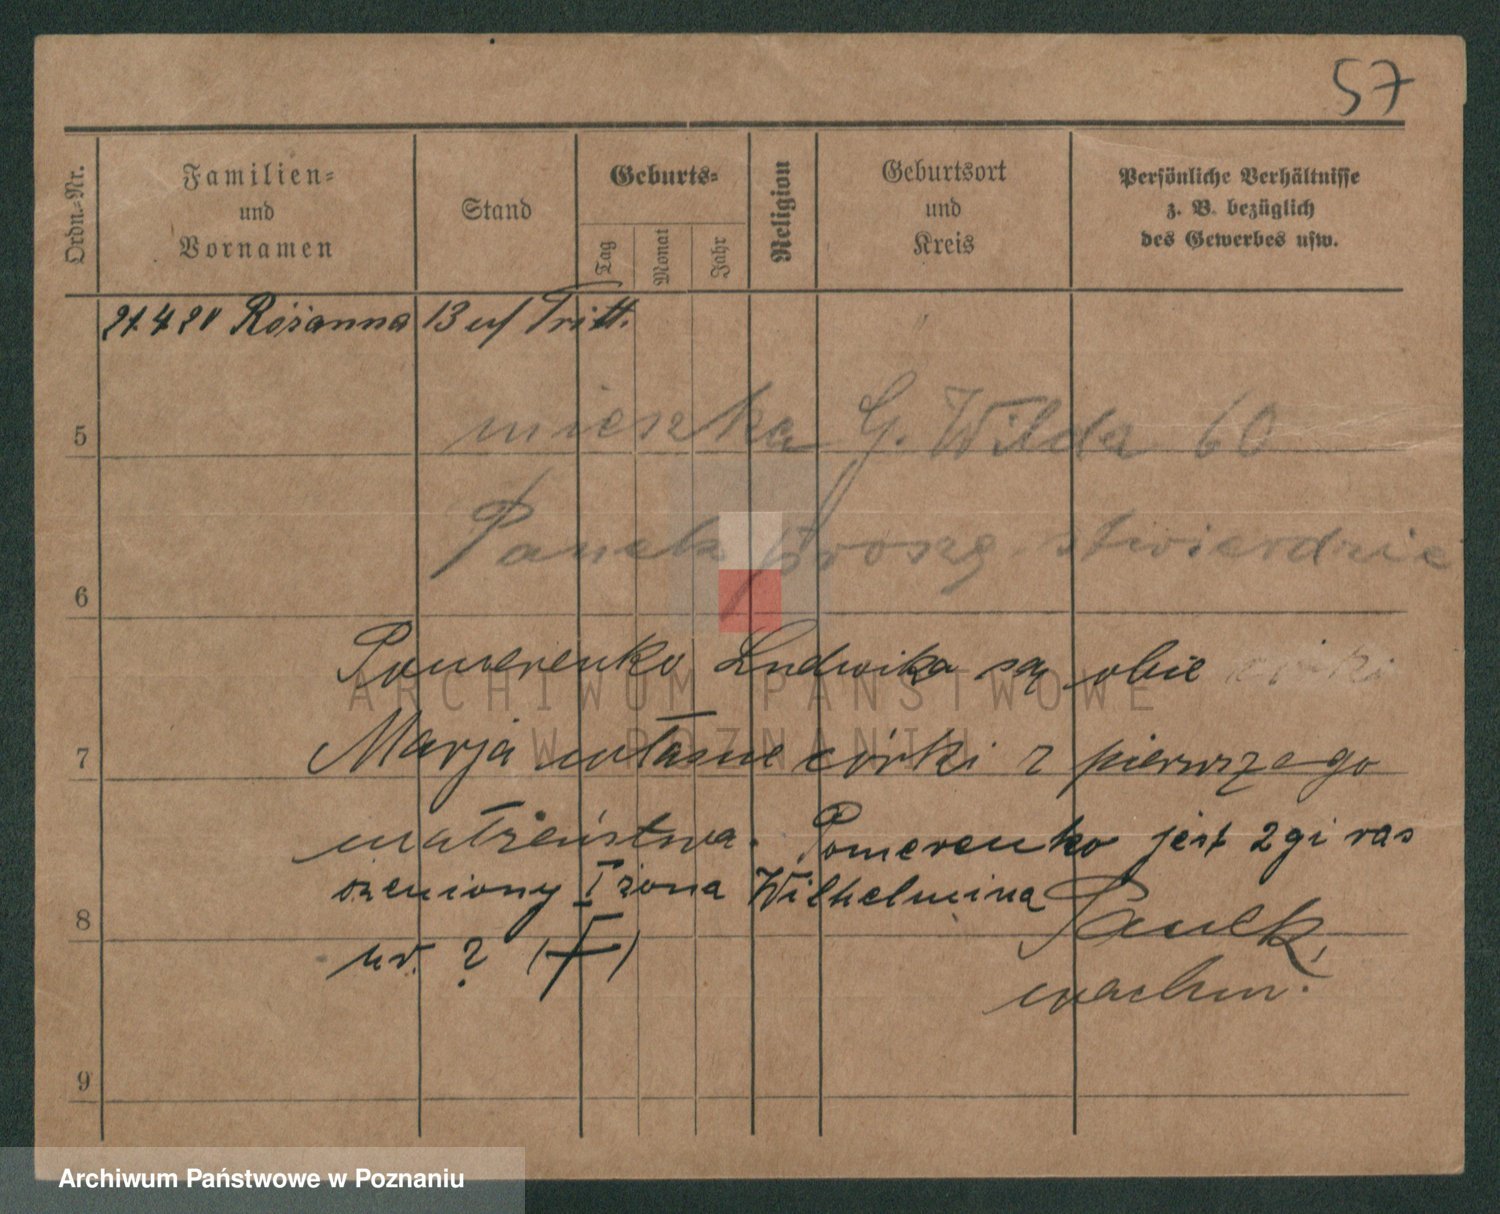 57
Ordn.-Nr.
Familien-
und
Vornamen
Stand
Geburts-
Tag
Monat
Jahr
Religion
Geburtsort
und
Kreis
Persönliche Verhältnisse
z. B. bezüglich
des Gewerbes usw.
Różanna 13 u/ Tritt.
5
mieszka G. Wilda 60
Panek proszę stwierdzić
6
Pomerenko Ludwika są obie córki
ARCHIWUM PAŃSTWOWE
W POZNANIU
7
Marja własne córki z pierwszego
małżeństwa. Pomerenko jest 2gi raz
żeniony I żona Wilhelmina
8
ur. ? (+)
Panek
wachm.
9
Archiwum Państwowe w Poznaniu